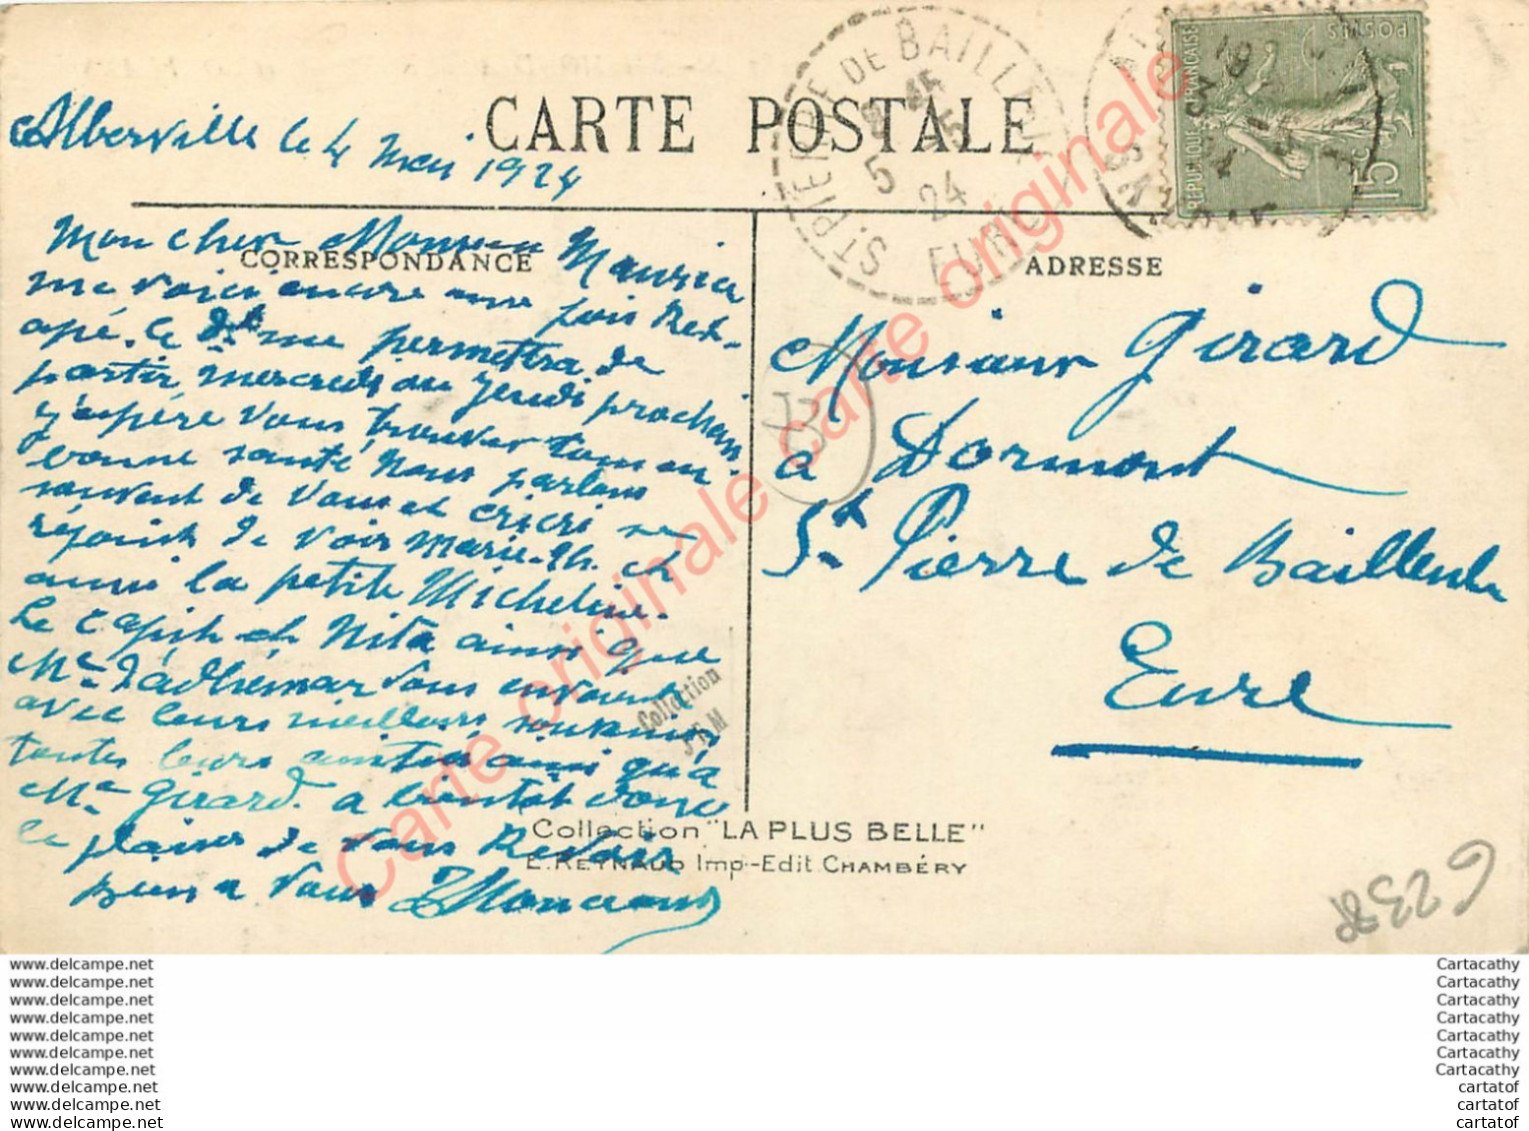 CARTE POSTALE
Alberville le 4 Mai 1924
CORRESPONDANCE
Mon cher Monsieur Maurice
me voici encore une fois Rét-
apé. le Dr me permettra de
partir mercredi ou jeudi prochain
j'espère vous trouver tous en
bonne santé nous parlons
souvent de vous et cricri se
réjouit de voir Marie-Th. et
aussi la petite Micheline.
Le Capit et Nita ainsi que
Me d'adhémar vous envoient
avec leurs meilleurs souvenirs
toutes leurs amitiés ainsi qu'à
Me Girard. a bientôt donc
le plaisir de vous Revoir
Bien a vous
ADRESSE
Monsieur Girard
à Dormont
St Pierre de Bailleul
Eure
ST PIERRE DE BAILLEUL
5 5
24
EURE
REPUBLIQUE FRANÇAISE
POSTES
15c
Collection "LA PLUS BELLE"
E. REYNAUD Imp-Edit CHAMBÉRY
Collection
Carte originale carte originale
www.delcampe.net
www.delcampe.net
www.delcampe.net
www.delcampe.net
www.delcampe.net
www.delcampe.net
www.delcampe.net
www.delcampe.net
www.delcampe.net
www.delcampe.net
Cartacathy
Cartacathy
Cartacathy
Cartacathy
Cartacathy
Cartacathy
Cartacathy
cartatof
cartatof
cartatof